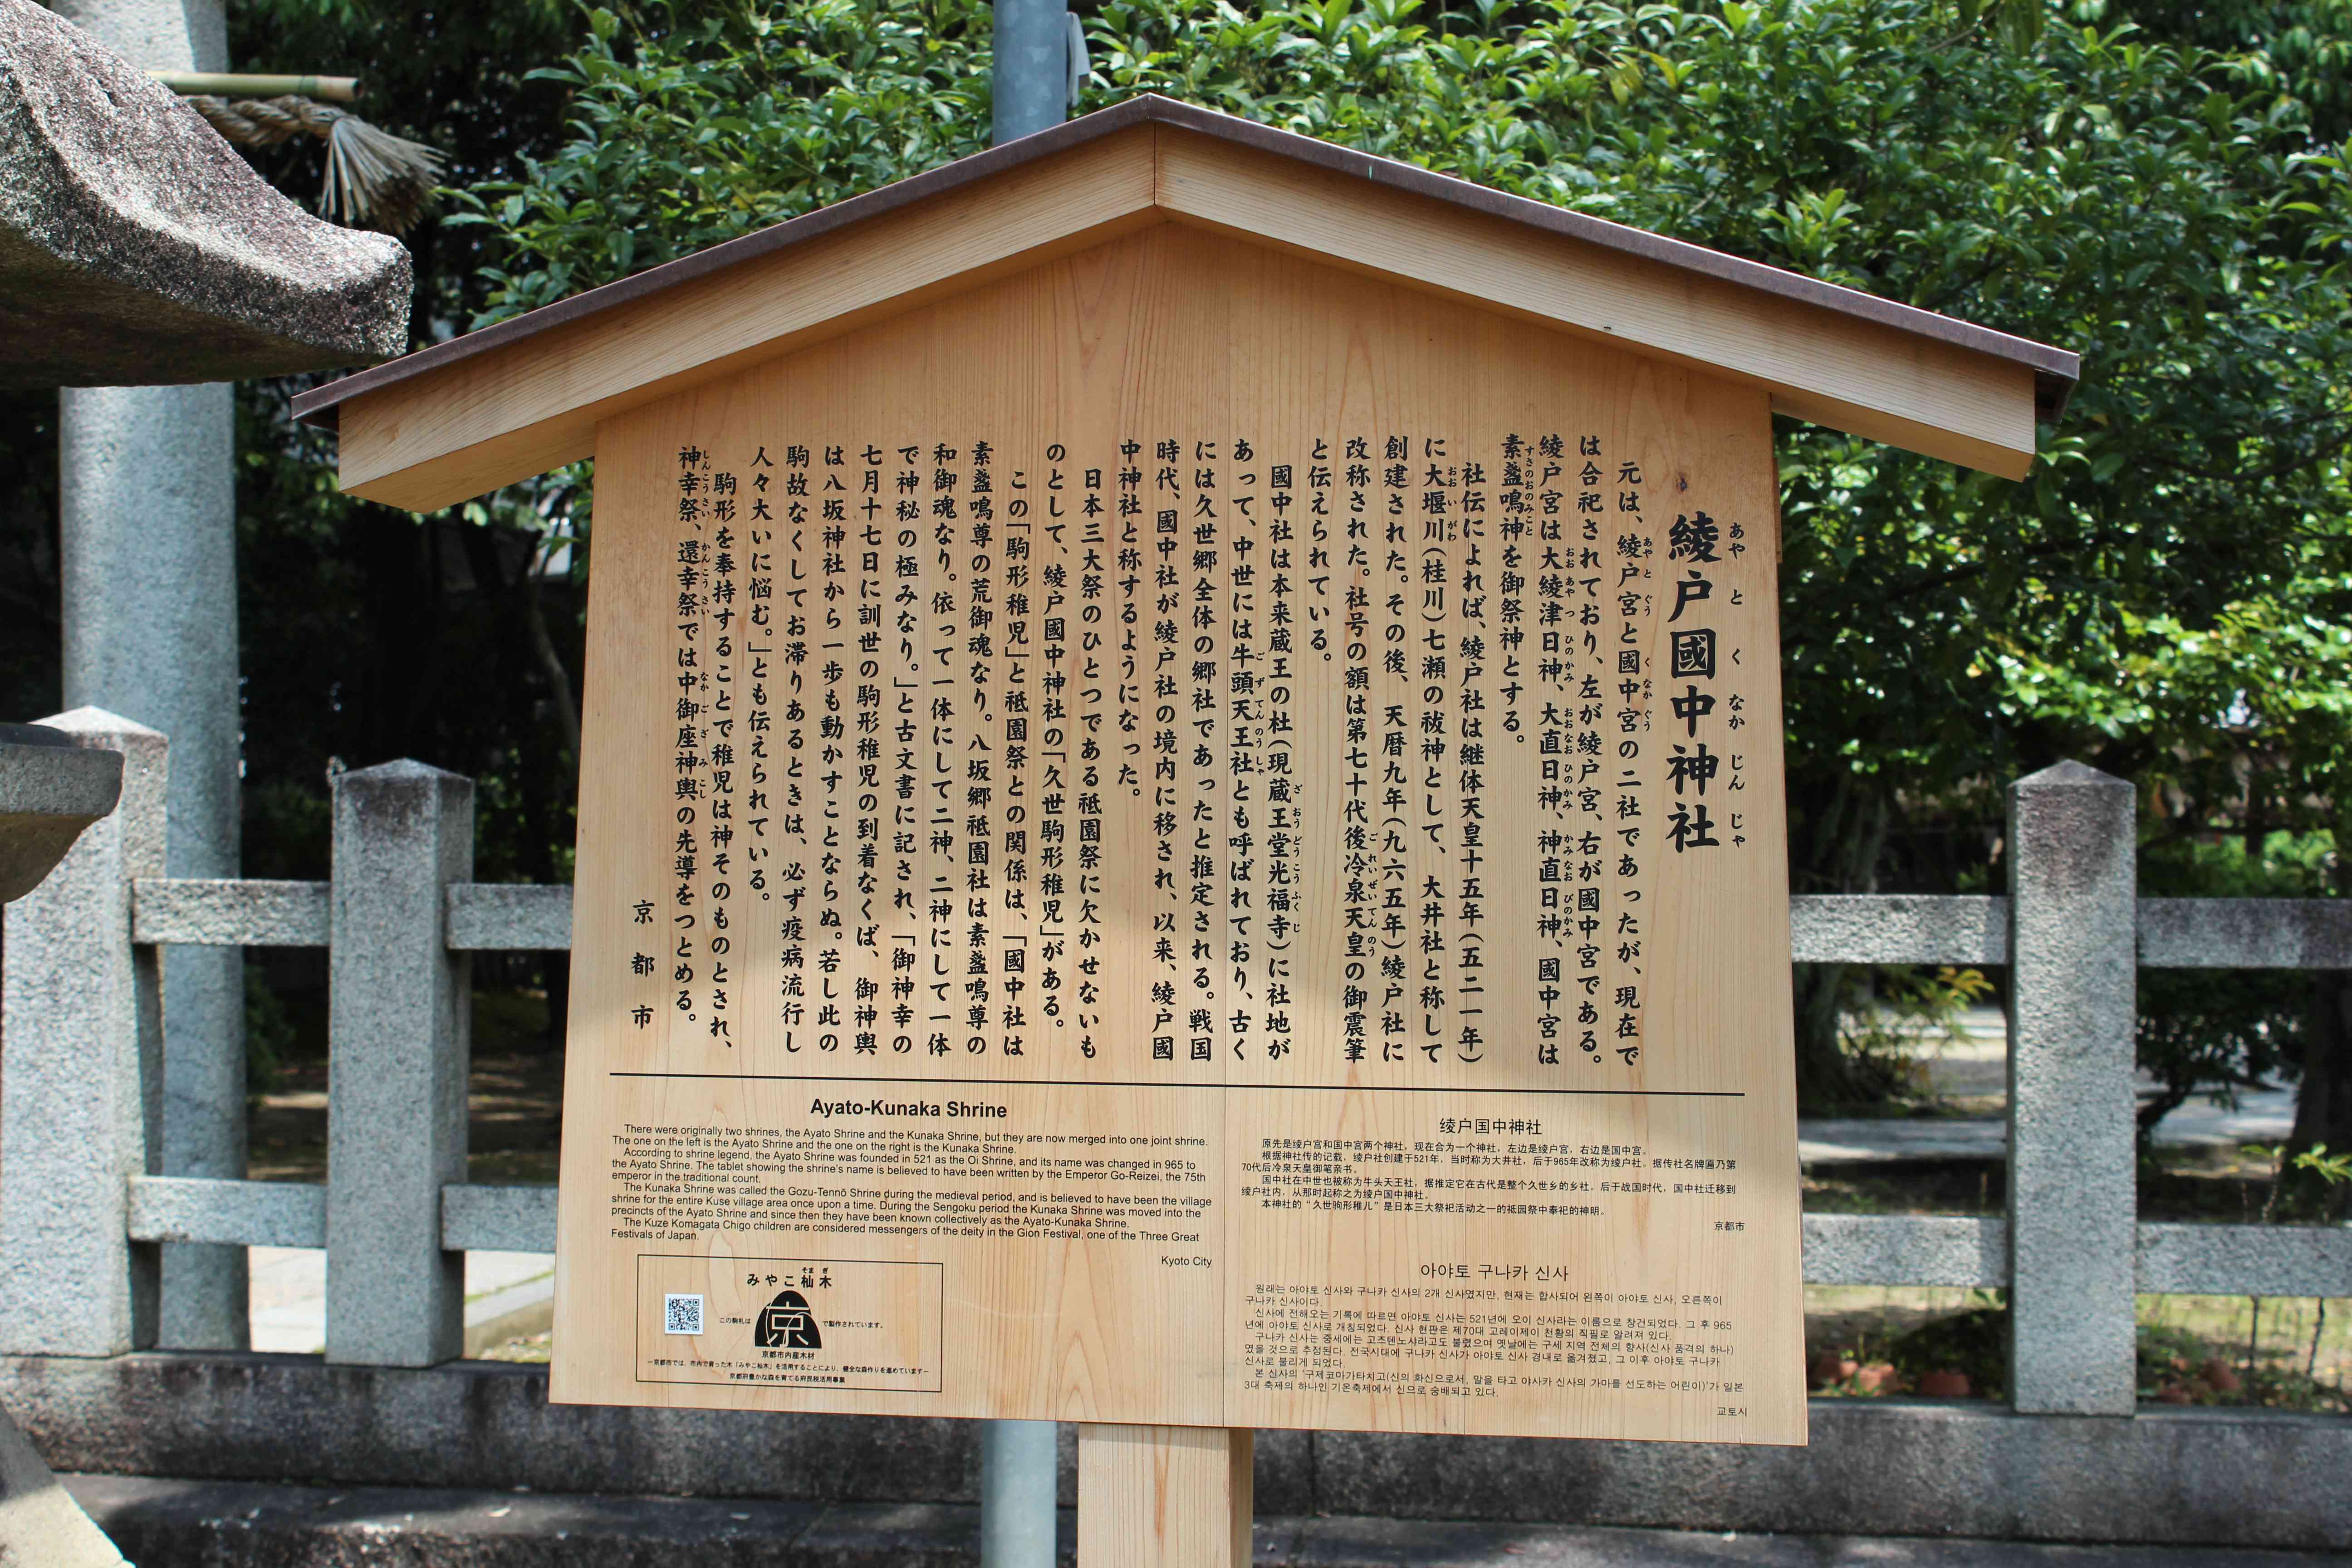 綾戸國中神社
あやとくなかじんじゃ
元は、綾戸宮と國中宮の二社であったが、現在で
は合祀されており、左が綾戸宮、右が國中宮である。
綾戸宮は大綾津日神、大直日神、神直日神、國中宮は
素盞鳴神を御祭神とする。
社伝によれば、綾戸社は継体天皇十五年(五二一年)
に大堰川(桂川)七瀬の祓神として、大井社と称して
創建された。その後、天暦九年(九六五年)綾戸社に
改称された。社号の額は第七十代後冷泉天皇の御震筆
と伝えられている。
國中社は本来蔵王の杜(現蔵王堂光福寺)に社地が
あって、中世には牛頭天王社とも呼ばれており、古く
には久世郷全体の郷社であったと推定される。戦国
時代、國中社が綾戸社の境内に移され、以来、綾戸國
中神社と称するようになった。
日本三大祭のひとつである祇園祭に欠かせないも
のとして、綾戸國中神社の「久世駒形稚児」がある。
この「駒形稚児」と祇園祭との関係は、「國中社は
素盞鳴尊の荒御魂なり。八坂郷祇園社は素盞鳴尊の
和御魂なり。依って一体にして二神、二神にして一体
で神秘の極みなり。」と古文書に記され、「御神幸の
七月十七日に訓世の駒形稚児の到着なくば、御神輿
は八坂神社から一歩も動かすことならぬ。若し此の
駒故なくしてお滞りあるときは、必ず疫病流行し
人々大いに悩む。」とも伝えられている。
駒形を奉持することで稚児は神そのものとされ、
神幸祭、還幸祭では中御座神輿の先導をつとめる。
京都市
Ayato-Kunaka Shrine
There were originally two shrines, the Ayato Shrine and the Kunaka Shrine, but they are now merged into one joint shrine.
The one on the left is the Ayato Shrine and the one on the right is the Kunaka Shrine.
According to shrine legend, the Ayato Shrine was founded in 521 as the Oi Shrine, and its name was changed in 965 to
the Ayato Shrine. The tablet showing the shrine's name is believed to have been written by the Emperor Go-Reizei, the 75th
emperor in the traditional count.
The Kunaka Shrine was called the Gozu-Tennō Shrine during the medieval period, and is believed to have been the village
shrine for the entire Kuse village area once upon a time. During the Sengoku period the Kunaka Shrine was moved into the
precincts of the Ayato Shrine and since then they have been known collectively as the Ayato-Kunaka Shrine.
The Kuze Komagata Chigo children are considered messengers of the deity in the Gion Festival, one of the Three Great
Festivals of Japan.
Kyoto City
绫户国中神社
原先是绫户宫和国中宫两个神社，现在合为一个神社，左边是绫户宫，右边是国中宫。
根据神社传的记载，绫户社创建于521年，当时称为大井社，后于965年改称为绫户社。据传社名牌匾乃第
70代后冷泉天皇御笔亲书。
国中社在中世也被称为牛头天王社，据推定它在古代是整个久世乡的乡社。后于战国时代，国中社迁移到
绫户社内，从那时起称之为绫户国中神社。
本神社的“久世驹形稚儿”是日本三大祭祀活动之一的祗园祭中奉祀的神明。
京都市
아야토 구나카 신사
원래는 아야토 신사와 구나카 신사의 2개 신사였지만, 현재는 합사되어 왼쪽이 아야토 신사, 오른쪽이
구나카 신사이다.
신사에 전해오는 기록에 따르면 아야토 신사는 521년에 오이 신사라는 이름으로 창건되었다. 그 후 965
년에 아야토 신사로 개칭되었다. 신사 현판은 제70대 고레이제이 천황의 직필로 알려져 있다.
구나카 신사는 중세에는 고즈텐노샤라고도 불렸으며 옛날에는 구세 지역 전체의 향사(신사 품격의 하나)
였을 것으로 추정된다. 전국시대에 구나카 신사가 아야토 신사 경내로 옮겨졌고, 그 이후 아야토 구나카
신사로 불리게 되었다.
본 신사의 '구제코마가타치고(신의 화신으로서, 말을 타고 야사카 신사의 가마를 선도하는 어린이)'가 일본
3대 축제의 하나인 기온축제에서 신으로 숭배되고 있다.
교토시
みやこ杣木
そまぎ
この駒札は
京
で製作されています。
京都市内産木材
ー京都市では、市内で育った木「みやこ杣木」を活用することにより、健全な森作りを進めていますー
京都府豊かな森を育てる府民税活用事業